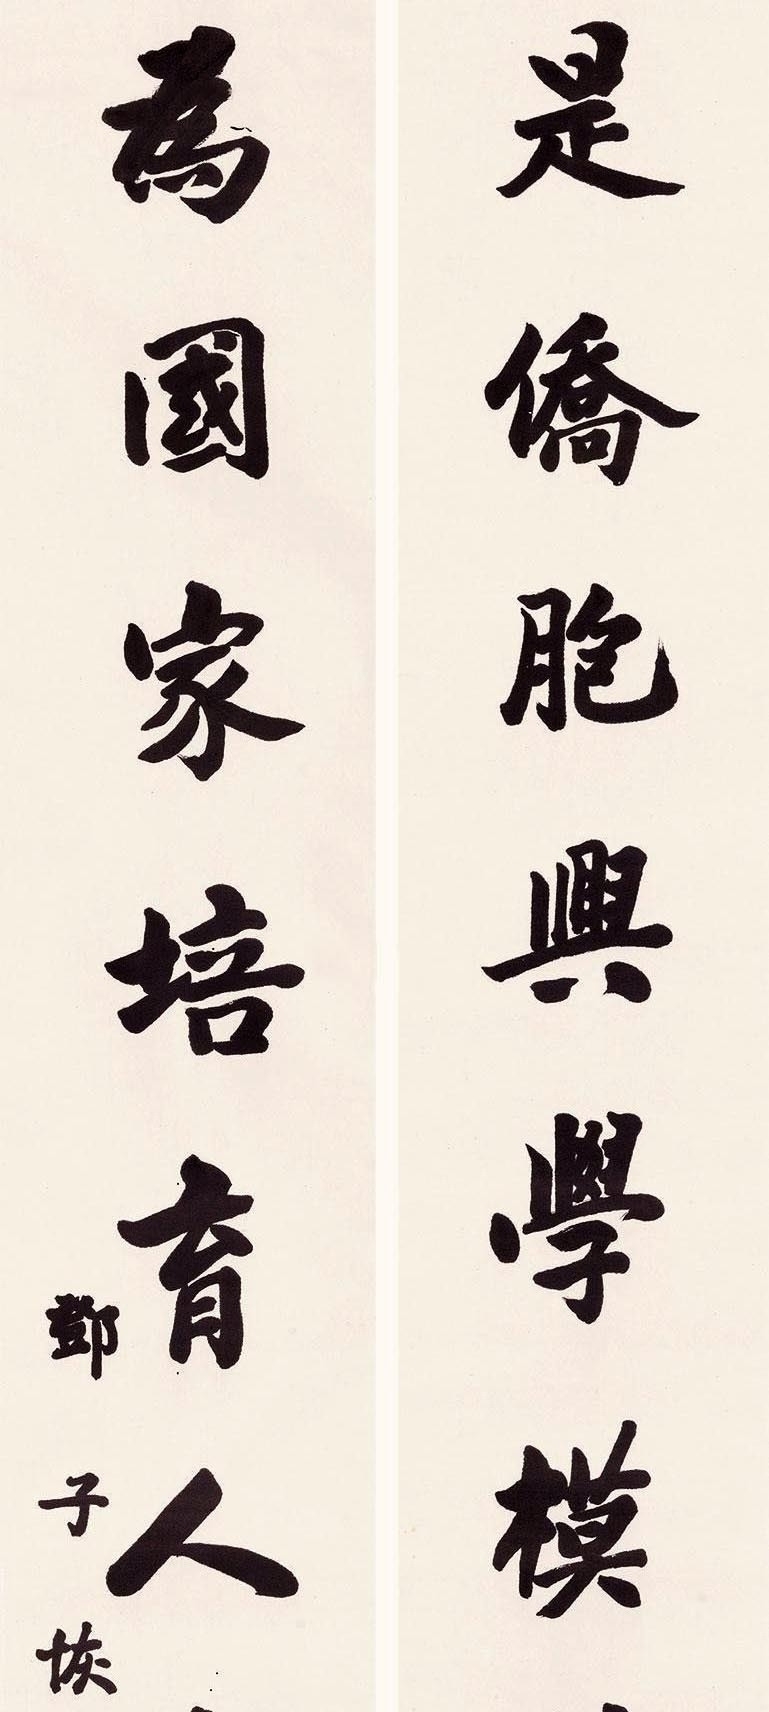 是僑胞興學模
為國家培育人
鄧子恢